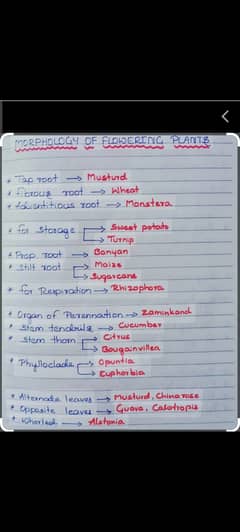 MORPHOLOGY OF FLOWERING PLANTS
* Tap root → Musturd
* fibrous root → Wheat
* Adventitious root → Monstera.
* for Storage → Sweet potato
→ Turnip
* Prop root → Banyan
* Stilt root → Maize
→ Sugarcane
* for Respiration → Rhizophora
* Organ of Perennation → Zaminkand
* Stem tendrils → Cucumber
* Stem thorn → Citrus
→ Bougainvillea
* Phylloclade → Opuntia
→ Euphorbia
* Alternate leaves → Musturd, China rose
* Opposite leaves → Guava, Calotropis
* Whorled → Alstonia